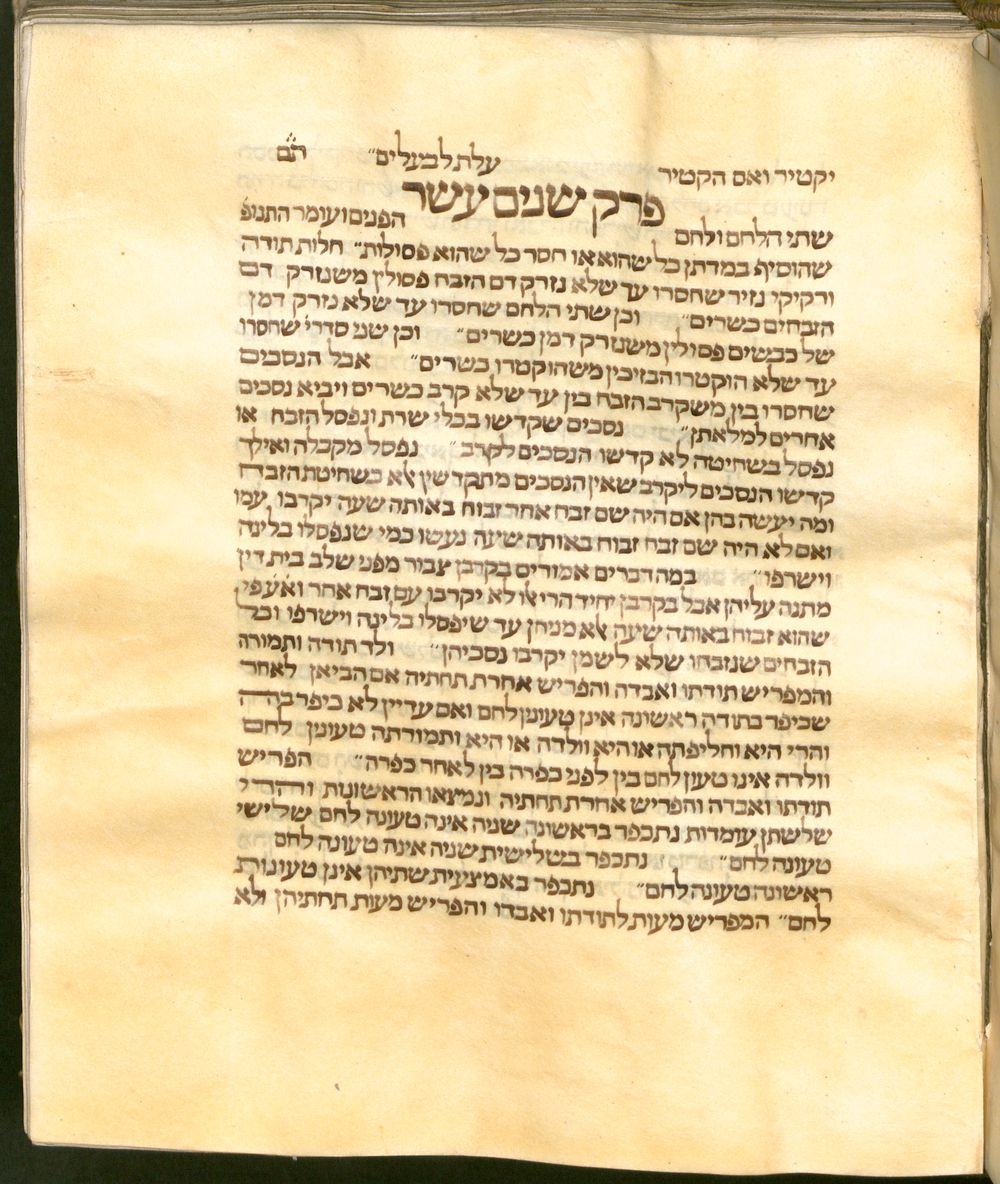 יקטיר ואם הקטיר עלת לבעלים״ תם
פרק שנים עשר
שתי הלחם ולחם הפנים ועומר התנופ
שהוסיף במדתן כל שהוא או חסר כל שהוא פסולות״ חלות תודה
ורקיקי נזיר שחסרו עד שלא נזרק דם הזבח פסולין משנזרק דם
הזבחים כשרים״ וכן שתי הלחם שחסרו עד שלא נזרק דמן
של כבשים פסולין משנזרק דמן כשרים״ וכן שני סדרי׳ שחסרו
עד שלא הוקטרו הבזיכין משהוקטרו כשרים״ אבל הנסכים
שחסרו בין משקרב הזבח בין עד שלא קרב כשרים ויביא נסכים
אחרים למלאתן״ נסכים שקדשו בכלי שרת ונפסל הזבח או
נפסל בשחיטה לא קדשו הנסכים לקרב״ נפסל מקבלה ואילך
קדשו הנסכים ליקרב שאין הנסכים מתקדשין אלא בשחיטת הזבח
ומה יעשה בהן אם היה שם זבח אחר זבוח באותה שעה יקרבו עמו
ואם לא היה שם זבח זבוח באותה שעה נעשו כמי שנפסלו בלינה
וישרפו״ במה דברים אמורים בקרבן צבור מפני שלב בית דין
מתנה עליהן אבל בקרבן יחיד הרי אלו לא יקרבו עם זבח אחר ואעפי
שהוא זבוח באותה שעה אלא מניחן עד שיפסלו בלינה וישרפו וכל
הזבחים שנזבחו שלא לשמן יקרבו נסכיהן״ ולד תודה ותמורה
והמפריש תודתו ואבדה והפריש אחרת תחתיה אם הביאן לאחר
שכיפר בתודה ראשונה אינן טעונין לחם ואם עדיין לא כיפר בה
והרי היא וחליפתה או היא וולדה או היא ותמורתה טעונין לחם
וולדה אינו טעון לחם בין לפני כפרה בין לאחר כפרה״ הפריש
תודתו ואבדה והפריש אחרת תחתיה ונמצאו הראשונות והרי
שלשתן עומדות נתכפר בראשונה שניה אינה טעונה לחם שלישי
טעונה לחם״ נתכפר בשלישית שניה אינה טעונה לחם
ראשונה טעונה לחם״ נתכפר באמצעית שתיהן אינן טעונות
לחם״ המפריש מעות לתודתו ואבדו והפריש מעות תחתיהן ולא